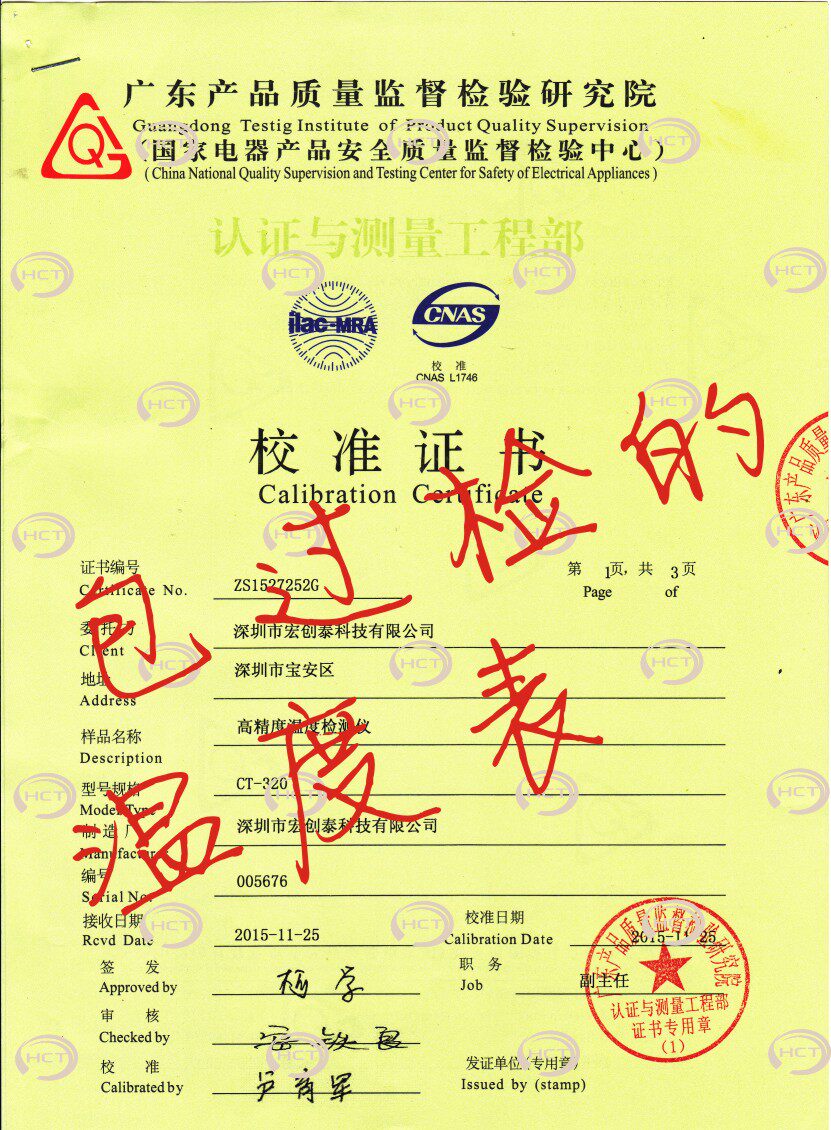 广东产品质量监督检验研究院
Guangdong Testig Institute of Product Quality Supervision
(国家电器产品安全质量监督检验中心)
( China National Quality Supervision and Testing Center for Safety of Electrical Appliances )
认证与测量工程部
ilac-MRA
CNAS
校 准
CNAS L1746
校准证书
Calibration Certificate
证书编号
Certificate No. ZS1527252G
第 1页, 共 3页
Page of
委托方 深圳市宏创泰科技有限公司
Client
地址 深圳市宝安区
Address
样品名称 高精度温度检测仪
Description
型号规格 CT-320
Model/Type
制造厂 深圳市宏创泰科技有限公司
Manufacturer
编号 005676
Serial No.
接收日期 2015-11-25 校准日期
Rcvd Date Calibration Date 2015-11-25
签 发 职 务 副主任
Approved by Job
审 核
Checked by
校 准 发证单位(专用章)
Calibrated by Issued by (stamp)
包过检的
温度表
广东产品质量监督检验研究院
认证与测量工程部
证书专用章
(1)
广东产品质量
HCT